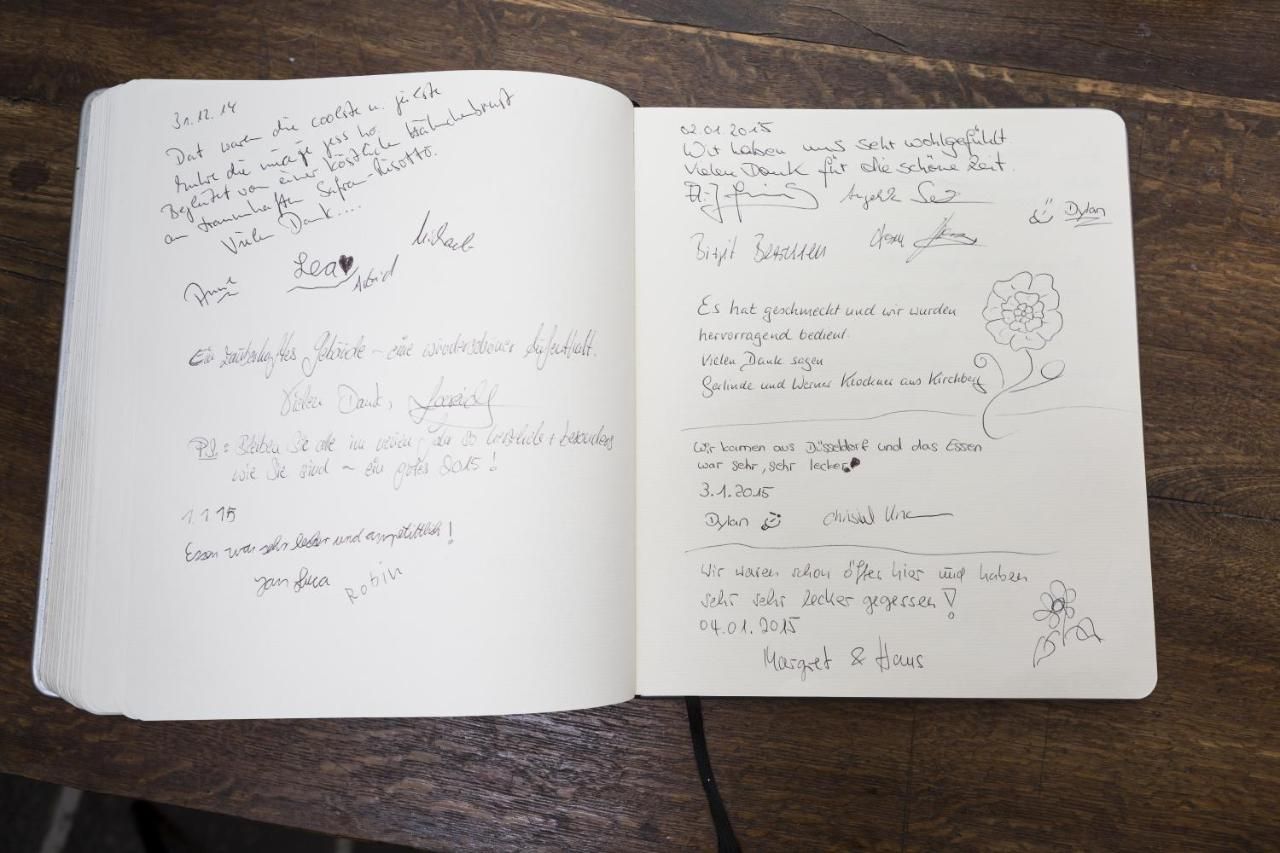 31.12.14
Dat waren die coolste u.
die
Begleitet von einer köstlichen Hähnchenbrust
an traumhaften Safran-Risotto.
Vielen Dank....
Michaela
Lea
Astrid
Anne
Ein zauberhaftes Gebäude – eine wunderschöner Aufenthalt.
Vielen Dank,
P.S.: Bleiben Sie alle im neuen Jahr so herzlich + besonders
wie Sie sind – ein gutes 2015!
1.1.15
Essen war sehr lecker und ampetittlich!
Jan Luca
Robin
02.01.2015
Wir haben uns sehr wohlgefühlt.
Vielen Dank für die schöne Zeit.
Dylan
Birgit
Es hat geschmeckt und wir wurden
hervorragend bedient.
Vielen Dank sagen
Gerlinde und Werner Klockner aus Kirchberg
Wir kamen aus Düsseldorf und das Essen
war sehr, sehr lecker
3.1.2015
Dylan Christel
Wir waren schon öfter hier und haben
sehr sehr lecker gegessen!
04.01.2015
Margret & Hans